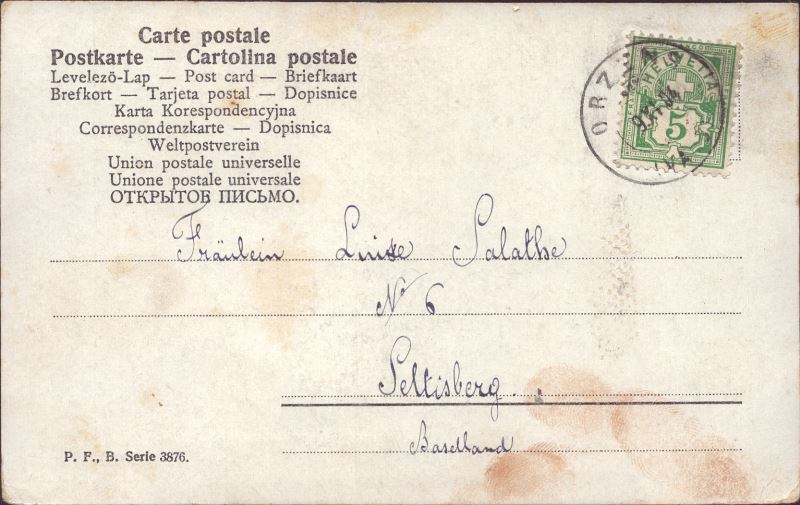 Carte postale
Postkarte — Cartolina postale
Levelezō-Lap — Post card — Briefkaart
Brefkort — Tarjeta postal — Dopisnice
Karta Korespondencyjna
Correspondenzkarte — Dopisnica
Weltpostverein
Union postale universelle
Unione postale universale
ОТКРЫТОЕ ПИСЬМО.
HELVETIA
5
Fräulein Luise Salathe
No 6
Seltisberg.
Baselland
P. F., B. Serie 3876.